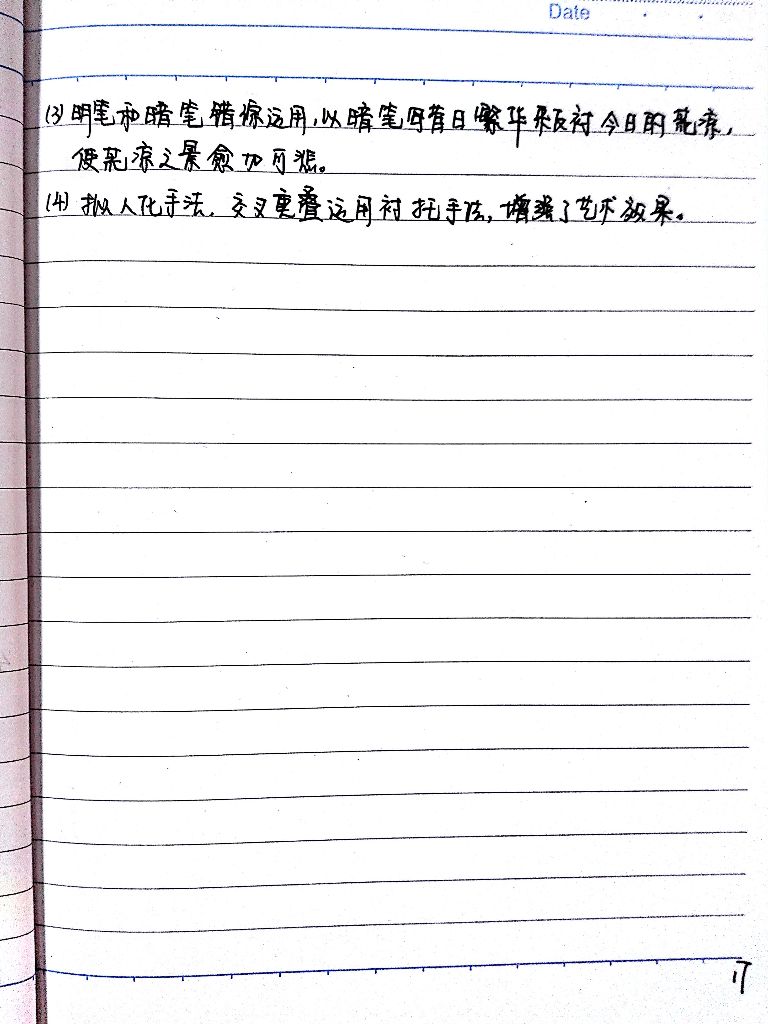 Date
(3) 明笔和暗笔错综运用,以暗笔写昔日繁华来反衬今日的荒凉,
使荒凉之景愈加可悲。
(4) 拟人化手法.交叉重叠运用衬托手法,增强了艺术效果。
17